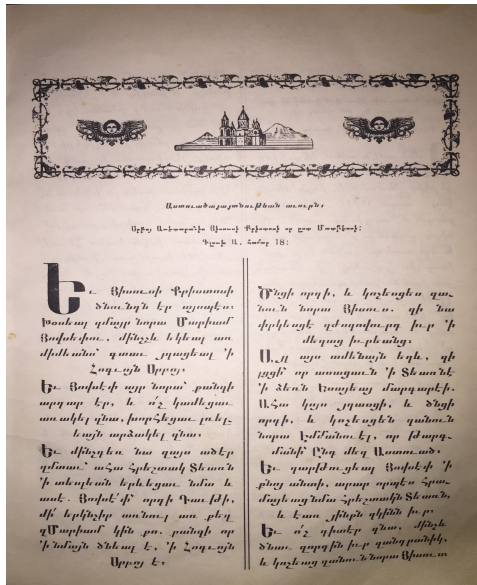 Աստուածայայտնութեան աւուրն։
Սրբոյ Աւետարանիս Յիսուսի Քրիստոսի որ ըստ Մատթէոսի։
Գլուխ Ա. համար 18։
Եւ Յիսուսի Քրիստոսի
ծնունդն էր այսպէս.
Խօսեալ զմայր նորա Մարիամ
Յովսեփու, մինչչև եկեալ առ
միմեանս՝ գտաւ յղացեալ ՚ի
Հոգւոյն Սրբոյ։
Եւ Յովսէփ այր նորա՝ քանզի
արդար էր, և ո՛չ կամեցաւ
առակել զնա, խորհեցաւ լռելե-
լեայն արձակել զնա։
Եւ մինչդեռ նա զայս ածէր
զմտաւ՝ ահա Հրեշտակ Տեառն
՚ի տեսլեան երևեցաւ նմա և
ասէ. Յովսէ՛փ՝ որդի Դաւթի,
մի՛ երկնչիր առնուլ առ քեզ
զՄարիամ կին քո. քանզի որ
՚ի նմայն ծնեալ է, ՚ի Հոգւոյն
Սրբոյ է։
Ծնցի որդի, և կոչեսցես զա-
նուն նորա Յիսուս. զի նա
փրկեսցէ զժողովուրդ իւր ՚ի
մեղաց իւրեանց։
Այլ այս ամենայն եղև, զի
լցցի՝ որ ասացաւն ՚ի Տեառնէ
՚ի ձեռն Եսայեայ մարգարէի.
Ահա կոյս յղասցի, և ծնցի
որդի, և կոչեսցեն զանուն
նորա Էմմանուէլ, որ թարգ-
մանի՝ Ընդ մեզ Աստուած.
Եւ զարթուցեալ Յովսէփ ՚ի
քնոյ անտի, արար որպէս հրա-
մայեաց նմա Հրեշտակն Տեառն,
և էառ յինքն զկինն իւր.
Եւ ո՛չ գիտէր զնա, մինչև
ծնաւ զորդին իւր զանդրանիկ,
և կոչեաց զանուն նորա Յիսուս